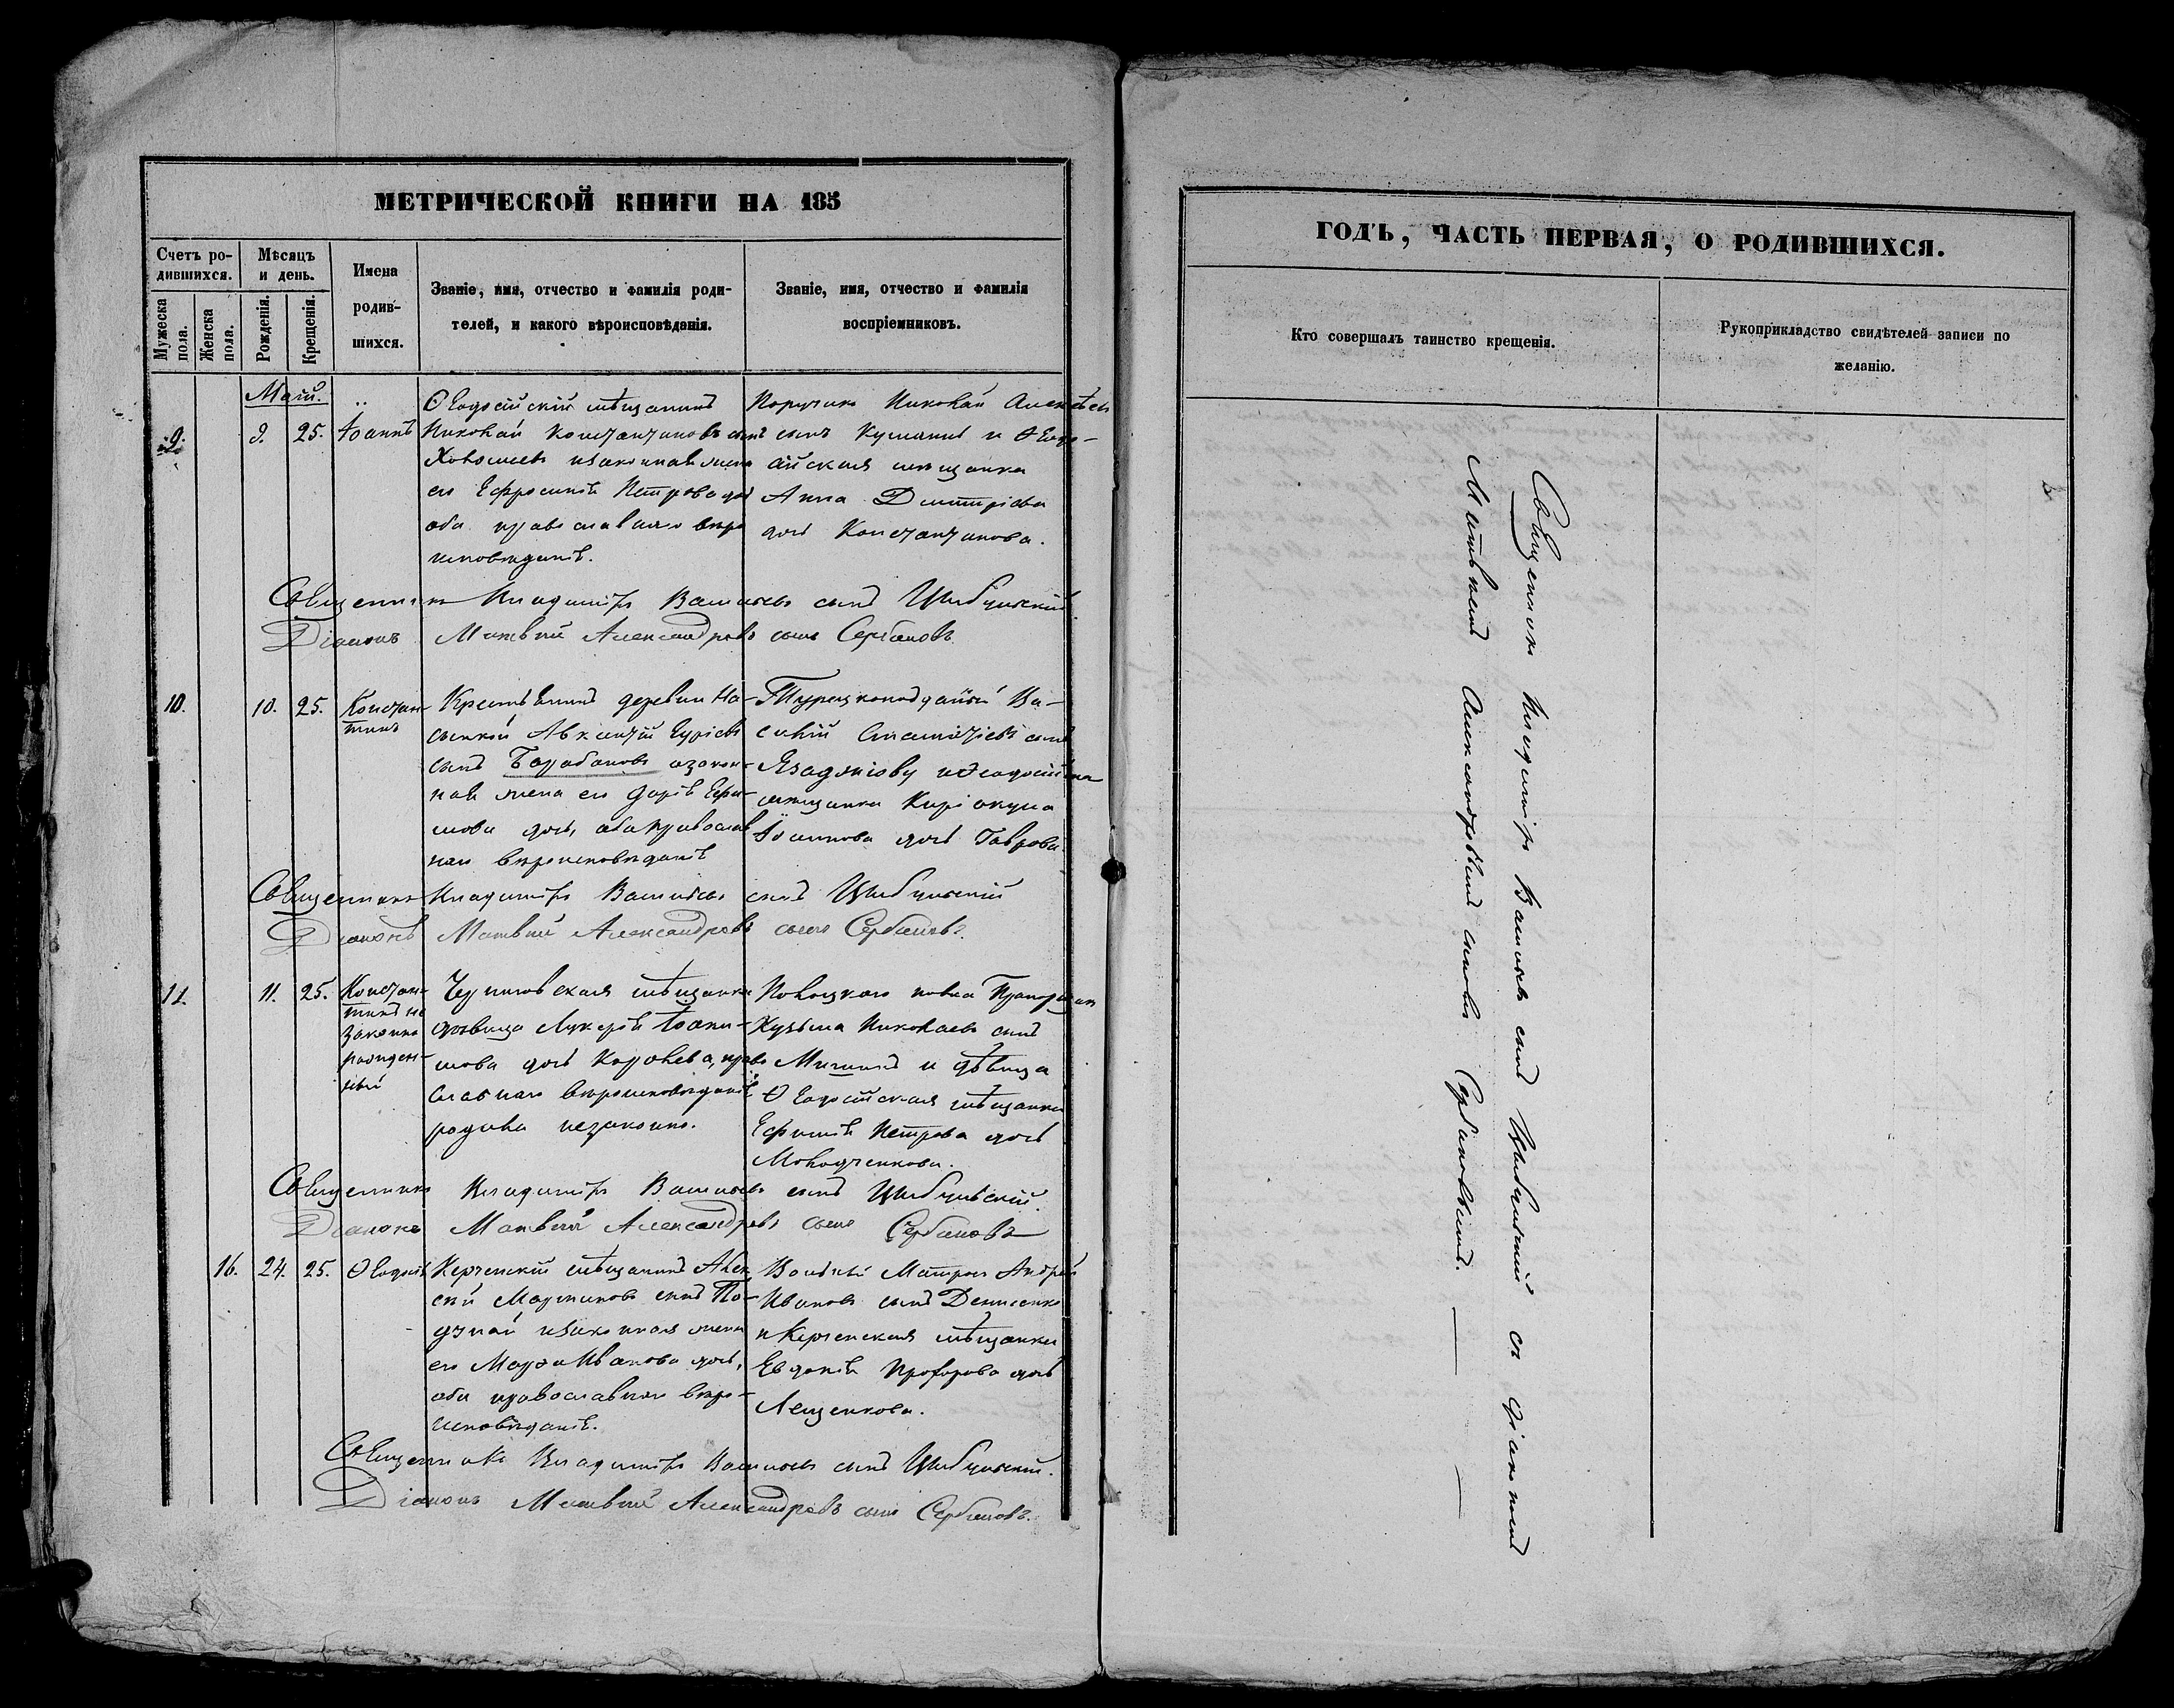 МЕТРИЧЕСКОЙ КНИГИ НА 185
Счетъ ро-
дившихся.
Мѣсяцъ
и день.
Имена
родив-
шихся.
Званіе, имя, отчество и фамилія роди-
телей, и какого вѣроисповѣданія.
Званіе, имя, отчество и фамилія
воспріемниковъ.
Мужеска
пола.
Женска
пола.
Рожденія.
Крещенія.
Май.
9. 9. 25. Іоаннъ
Ѳеодосійскій мѣщанинъ
Николай Константиновъ сынъ
изаконная жена
его Ефросинія Петрова дочь
оба православнаго вѣро
исповѣданія.
Поручикъ Николай Алексѣевъ
сынъ и Ѳеодо-
сійская мѣщанка
Анна Дмитріева
дочь Константинова.
Священникъ Владиміръ Васильевъ сынъ
Діаконъ Матвій Александровъ сынъ Сербиновъ
10. 10. 25. Констан-
тинъ
Крестьянинъ деревни На-
сынъ Барабановъ изакон-
ная жена его Дарія Ефи-
мова дочь, оба православ
наго вѣроисповѣданія
Турецкоподданый Ва-
силій сынъ
мѣщанка
дочь Таврова.
Священникъ Владиміръ Васильевъ сынъ
Діаконъ Матвій Александровъ сынъ Сербиновъ.
11. 11. 25. Констан-
тинъ не
законно
рожден-
ный
мѣщанка
дѣвица Лукерія Іоаки-
мова дочь Королева, право
славнаго вѣроисповѣданія
родила незаконно.
полка Прапорщикъ
Кузьма Николаевъ сынъ
и дѣвица
Ѳеодосійская мѣщанка
Ефимія Петрова дочь
Молодченкова.
Священникъ Владиміръ Васильевъ сынъ
Діаконъ Матвій Александровъ сынъ Сербиновъ
16. 24. 25. Ѳеодосія
Керченскій мѣщанинъ Алек
сѣй Мартиновъ сынъ По-
изаконная жена
его Марѳа Иванова дочь,
оба православнаго вѣро-
исповѣданія.
Вольный Матросъ Андрей
Ивановъ сынъ Денисенко
и Керченская мѣщанка
Евдокія Прохорова дочь
Лещенкова.
Священникъ Владиміръ Васильевъ сынъ
Діаконъ Матвій Александровъ сынъ Сербиновъ.
ГОДЪ, ЧАСТЬ ПЕРВАЯ, О РОДИВШИХСЯ.
Кто совершалъ таинство крещенія.
Рукоприкладство свидѣтелей записи по
желанію.
Священникъ Владиміръ Васильевъ сынъ съ діакономъ
Матвѣемъ Александровымъ сыномъ Сербиновымъ.